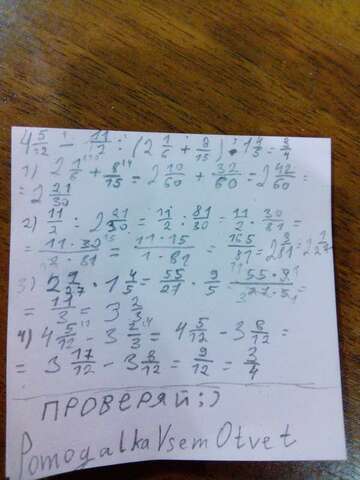 4 5/12 - 11/2 : (2 1/6 + 8/15) · 1 4/5 = 3/4
1) 2 1/6 + 8/15 = 2 10/60 + 32/60 = 2 42/60 =
= 2 21/30
2) 11/2 : 2 21/30 = 11/2 : 81/30 = 11/2 · 30/81 =
= 11·30/2·81 = 11·15/1·81 = 165/81 = 2 3/81 = 2 1/27
3) 2 1/27 · 1 4/5 = 55/27 · 9/5 = 55·9/27·5 =
= 11/3 = 3 2/3
4) 4 5/12 - 3 2/3 = 4 5/12 - 3 8/12 =
= 3 17/12 - 3 8/12 = 9/12 = 3/4
ПРОВЕРЯЙ;)
PomogalkaVsemOtvet